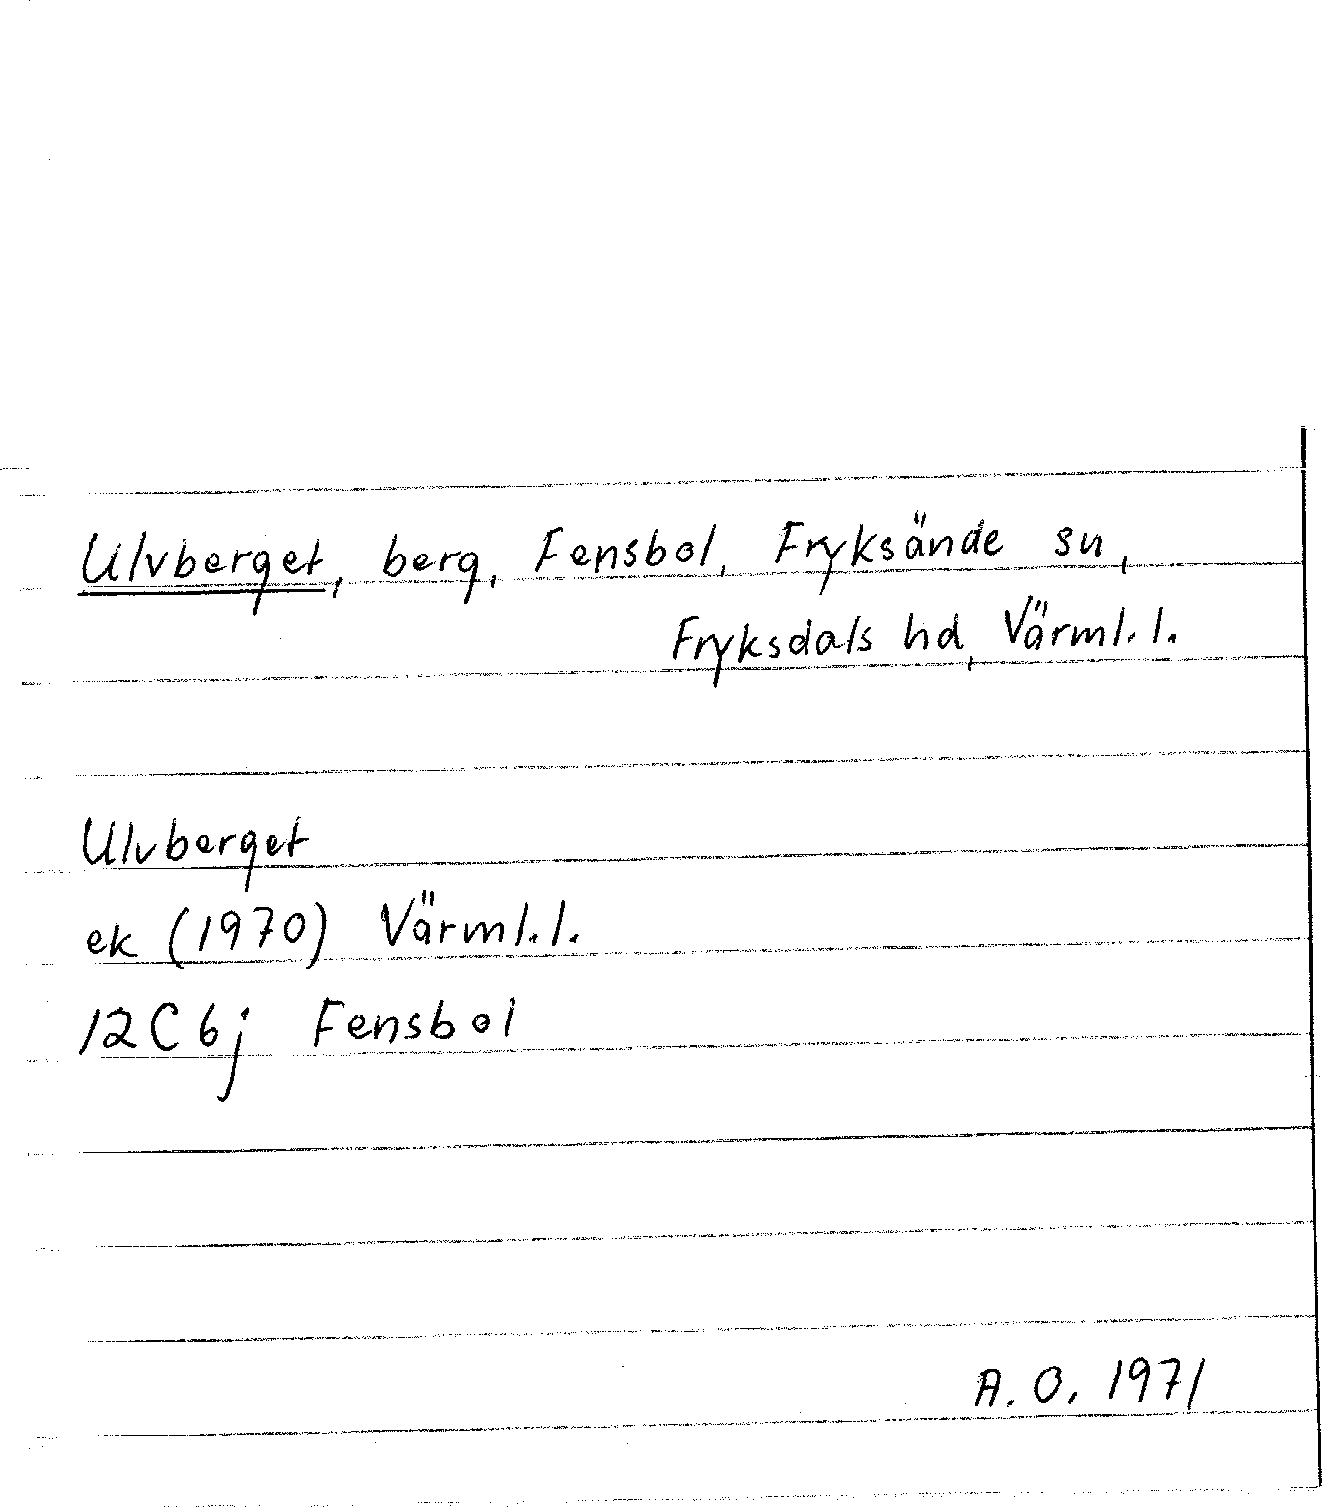 Ulvberget, berg, Fensbol, Fryksände sn,
Fryksdals hd, Värml. l.
Ulvberget
ek (1970) Värml. l.
12C 6j Fensbol
A. O. 1971